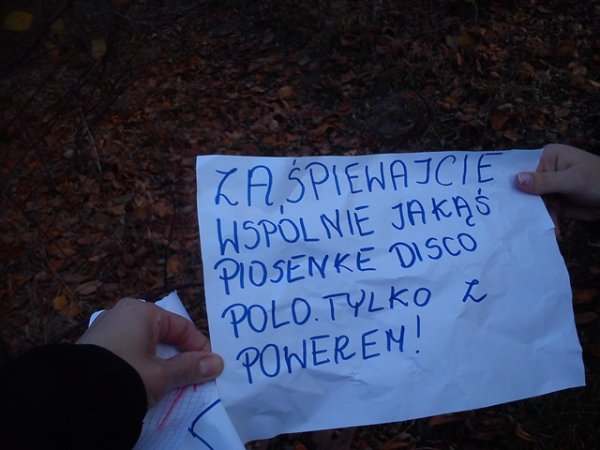 ZAŚPIEWAJCIE
WSPÓLNIE JAKĄŚ
PIOSENKE DISCO
POLO. TYLKO Z
POWEREM!